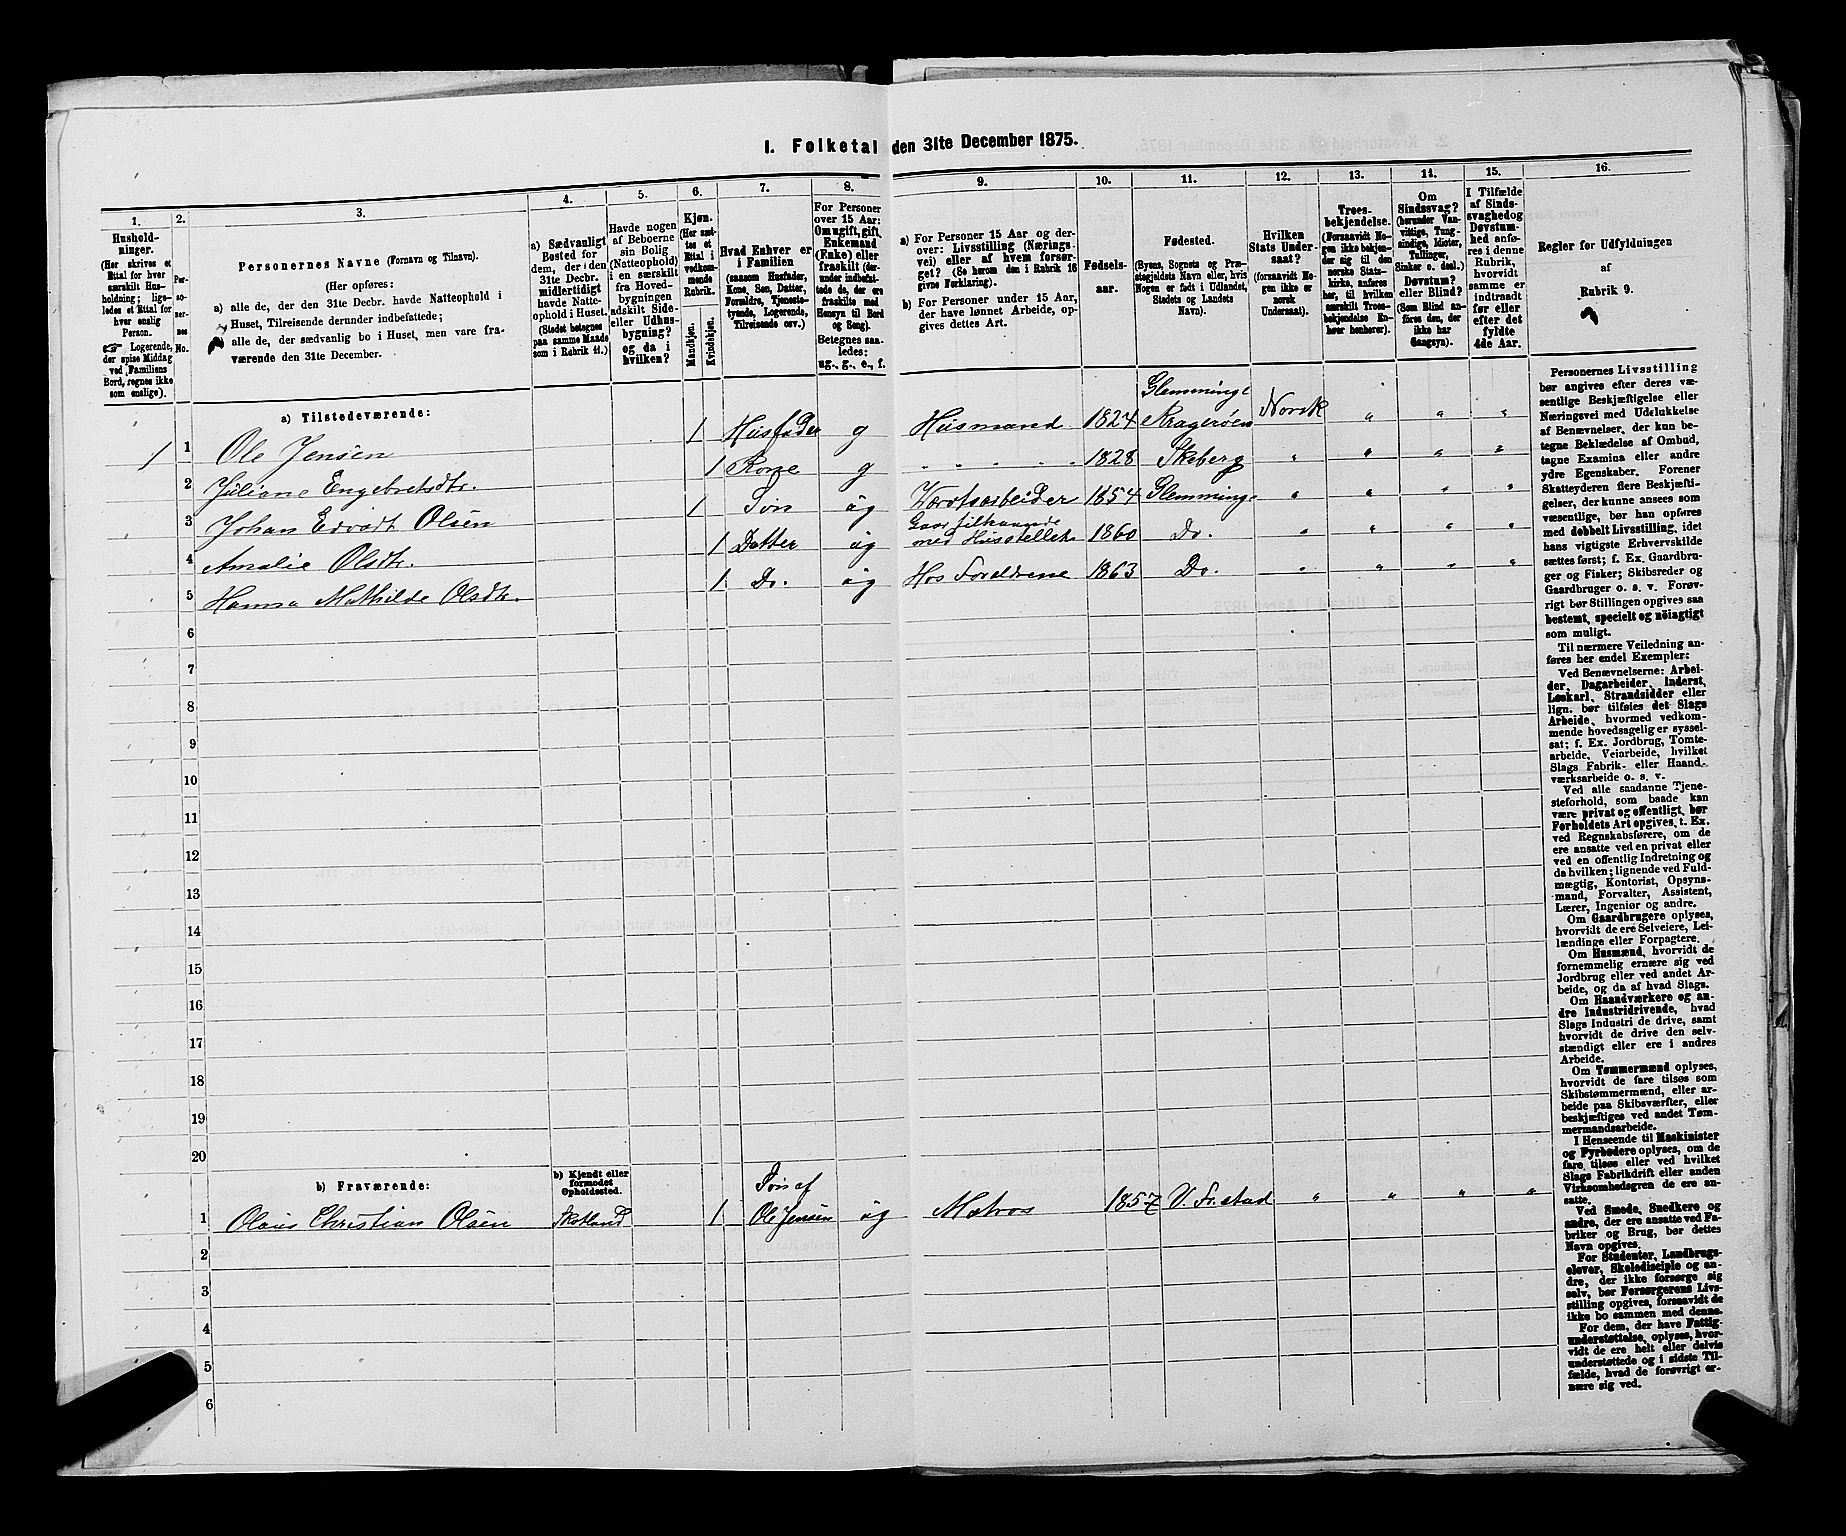 I. Folketal den 31te December 1875.
1. 2. 3. 4. 5. 6. 7. 8. 9. 10. 11. 12. 13. 14. 15. 16.
Husholdninger.
(Her skrives et
Ettal for hver
særskilt Husholdning;
ligeledes et Ettal for
hver enslig
Person.
☞ Logerende,
der spise Middag
ved Familiens
Bord, regnes ikke
som enslige).
Personernes No.
Personernes Navne (Fornavn og Tilnavn).
(Her opføres:
a) alle de, der den 31te Decbr. havde Natteophold i
Huset, Tilreisende derunder indbefattede;
b) alle de, der sædvanlig bo i Huset, men vare fraværende
den 31te December.
a) Sædvanligt
Bosted for
dem, der i den
31te Decbr.
midlertidigt
havde Natteophold
i Huset.
(Stedet betegnes
paa samme Maade
som i Rubrik 11.)
Havde nogen
af Beboerne
sin Bolig
(Natteophold)
i en særskilt
fra Hovedbygningen
adskilt Side-
eller Udhusbygning?
og da i
hvilken?
Kjøn.
(Her sættes
et
Ettal i
vedkommende
Rubrik.
Mandkjøn.
Kvindekjøn.
Hvad Enhver er
i Familien
(saasom Husfader,
Kone, Søn, Datter,
Forældre, Tjenestetyende,
Logerende,
Tilreisende osv.)
For Personer
over 15 Aar:
Om ugift, gift,
Enkemand
(Enke) eller
fraskilt (derunder
indbefattede
de, der ere
fraskilte med
Hensyn til Bord
og Seng).
Betegnes saaledes:
ug., g., e., f.
a) For Personer 15 Aar og derover:
Livsstilling (Næringsvei)
eller af hvem forsørget?
(Se herom den i Rubrik 16
givne Forklaring).
b) For Personer under 15 Aar,
der have lønnet Arbeide, opgives
dettes Art.
Fødselsaar.
Fødested.
(Byens, Sognets og Præstegjeldets
Navn eller, hvis
Nogen er født i Udlandet,
Stedets og Landets
Navn).
Hvilken
Stats Undersaat?
(forsaavidt Nogen
ikke er
norsk
Undersaat).
Troesbekjendelse.
(Forsaavidt Nogen
ikke bekjender
sig til den
norske Statskirke,
anføres
her, til hvilken
særskilt Troesbekjendelse
Enhver
henhører).
Om
Sindssvag?
(herunder Vanvittige,
Tungsindige,
Idioter,
Tullinger,
Sinker o. desl.)
Døvstum?
eller Blind?
(Som Blind anføres
den, der
ikke har
Gangsyn).
I Tilfælde
af Sindssvaghed
og
Døvstumhed
anføres
i denne
Rubrik,
hvorvidt
samme er
indtraadt
før eller
efter det
fyldte
4de Aar.
Regler før Udfyldningen
af
Rubrik 9.
a) Tilstedeværende:
1 1 Ole Jensen 1 Husfader g Husmand 1824 Glemminge Kragerøen Norsk " " "
2 Juliane Engebretsdtr. 1 Kone g " " " " " 1828 Skeberg " " " "
3 Johan Edvadt Olsen 1 Søn ug Værftsarbeider 1854 Glemminge " " " "
4 Amalie Olsdtr. 1 Datter ug Gaar tilhaande med Husstellet 1860 Do. " " " "
5 Hanna Mathilde Olsdtr. 1 Do. ug Hos Foreldrene 1863 Do. " " " "
6
7
8
9
10
11
12
13
14
15
16
17
18
19
20
b) Fraværende:
b) Kjendt eller
formodet
Opholdssted.
1 Olaus Christian Olsen Skotland 1 Søn af Ole Jensen ug Matros 1857 V. Fr.stad " " " "
2
3
4
5
6
Personernes Livsstilling
bør angives efter deres væsentlige
Beskjæftigelse eller
Næringsvei med Udelukkelse
af Benævnelser, der kun betegne
Beklædelse af Ombud,
tagne Examina eller andre
ydre Egenskaber. Forener
Skatteyderen flere Beskjæftigelser,
der kunne ansees som
væsentlige, bør han opføres
med dobbelt Livsstilling, idet
hans vigtigste Erhvervskilde
sættes først; f. Ex. Gaardbruger
og Fisker; Skibsreder og
Gaardbruger o. s. v. Forøvrigt
bør Stillingen opgives saa
bestemt, specielt og nøiagtigt
som muligt.
Til nærmere Veiledning anføres
her endel Exempler:
Ved Benævnelserne: Arbeider,
Dagarbeider, Inderst,
Løskarl, Strandsidder eller
lign. bør tilføies det Slags
Arbeide, hvormed vedkommende
hovedsagelig er sysselsat;
f. Ex. Jordbrug, Tomtearbeide,
Veiarbeide, hvilket
Slags Fabrik- eller Haandværksarbeide
o. s. v.
Ved alle saadanne Tjenesteforhold,
som baade kan
være privat og offentligt, bør
Forholdets Art opgives, t. Ex.
ved Regnskabsførere, om de
ere ansatte ved en privat eller
ved en offentlig Indretning og
da hvilken; lignende ved Fuldmægtig,
Kontorist, Opsynsmand,
Forvalter, Assistent,
Lærer, Ingeniør og andre.
Om Gaardbrugere oplyses,
hvorvidt de ere Selveiere, Leilændinge
eller Forpagtere.
Om Husmænd, hvorvidt de
fornemmelig ernære sig ved
Jordbrug eller ved andet Arbeide,
og da af hvad Slags.
Om Haandværkere og andre
Industridrivende, hvad
Slags Industri de drive, samt
hvorvidt de drive den selvstændigt
eller ere i andres
Arbeide.
Om Tømmermænd oplyses,
hvorvidt de fare tilsøs som
Skibstømmermænd, eller arbeide
paa Skibsværfter, eller
beskjæftiges ved andet Tømmermandsarbeide.
I Henseende til Maskinister
og Fyrbødere oplyses, om de
fare tilsøs eller ved hvilket
Slags Fabrikdrift eller anden
Virksomhedsgren de ere ansatte.
Ved Smede, Snedkere og
andre, der ere ansatte ved Fabriker
og Brug, bør dettes
Navn opgives.
For Studenter, Landbrugselever,
Skoledisciple og andre,
der ikke forsørge sig
selv, bør Forsørgerens Livsstilling
opgives, forsaavidt de
ikke bo sammen med denne.
For dem, der have Fattigunderstøttelse,
oplyses, hvorvidt
de ere helt eller delvis
understøttede og i sidste Tilfælde,
hvad de forøvrigt ernære
sig ved.